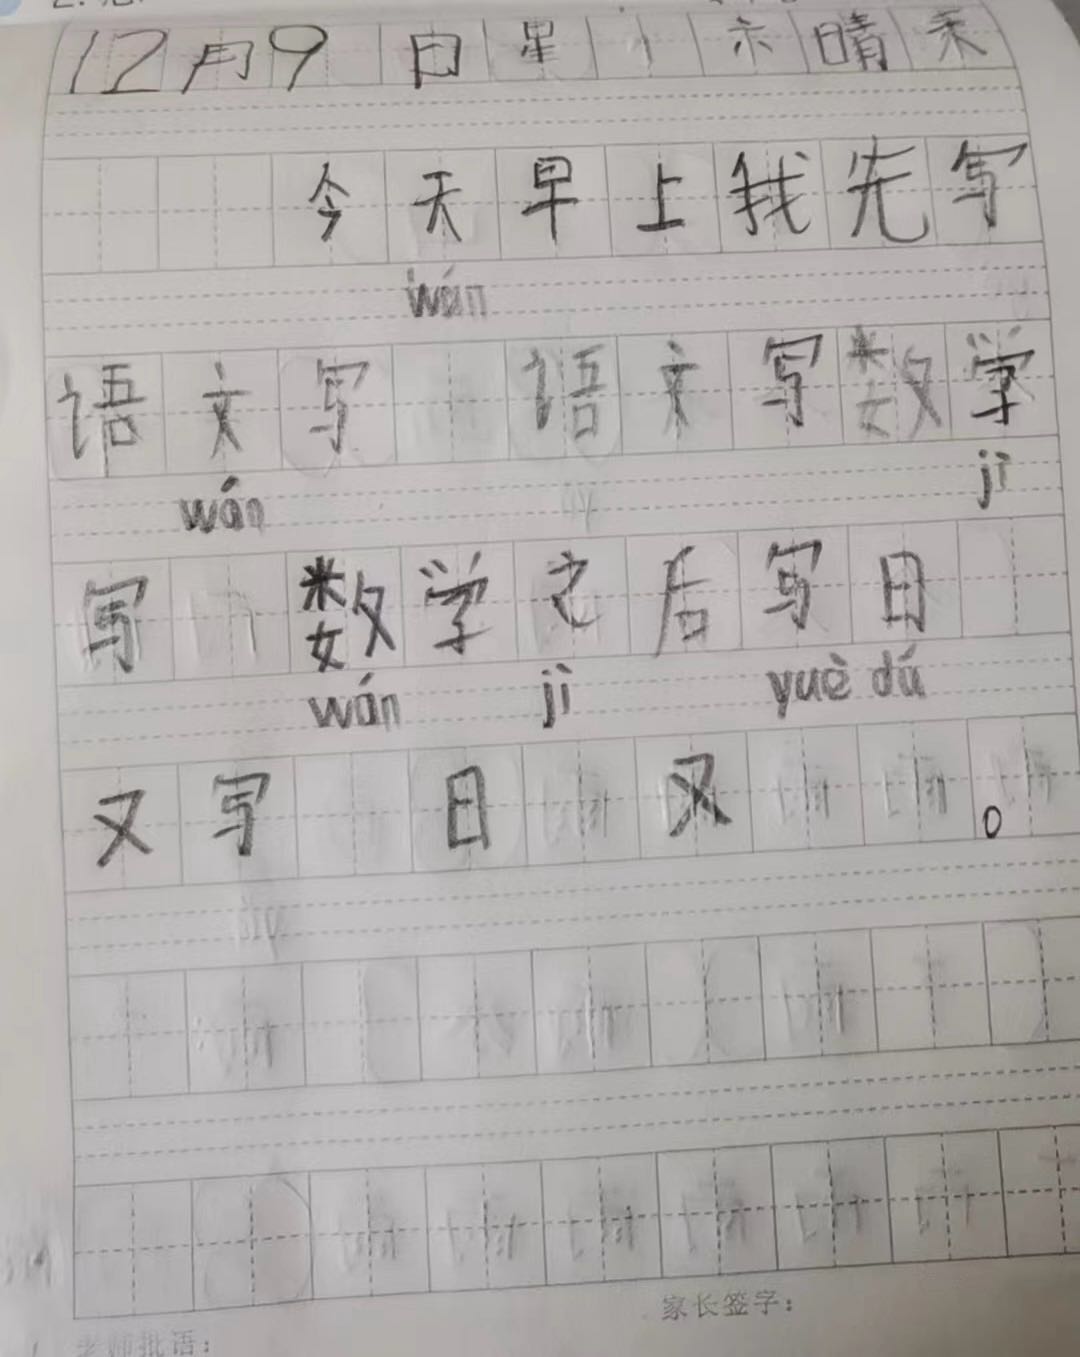 12月9日星 晴
今天早上我先写
wán
语文写 语文写数学
wán jì
写 数学之后写日
wán jì yuè dú
又写 日 又 。
家长签字：
老师批语：